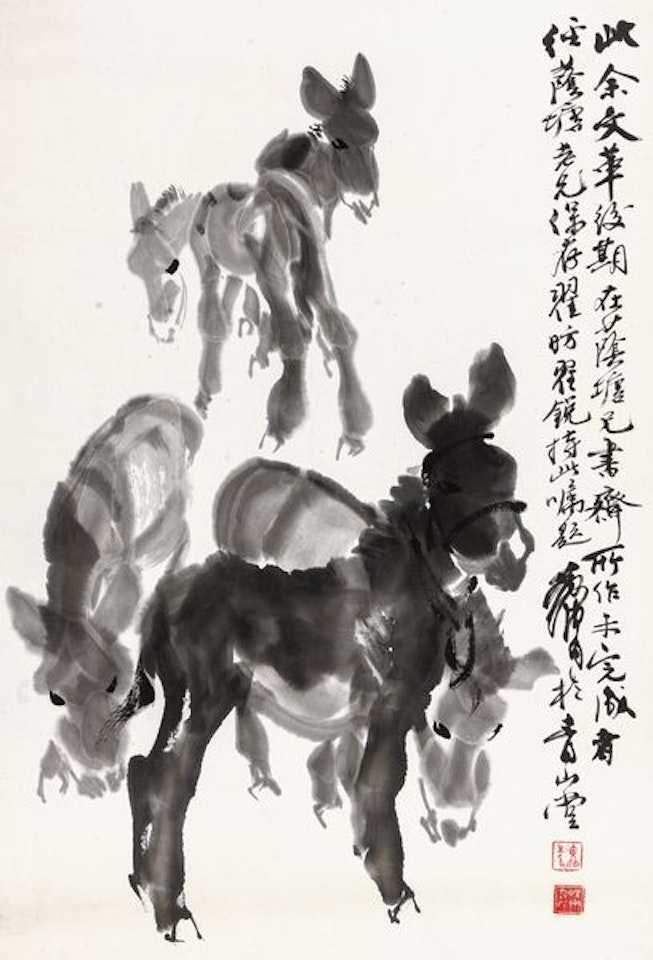 此余文革後期在蔭塘兄書齋所作未完成者
经蔭塘老兄保存翟昉翟锐持此嘱題黄胄於青山堂